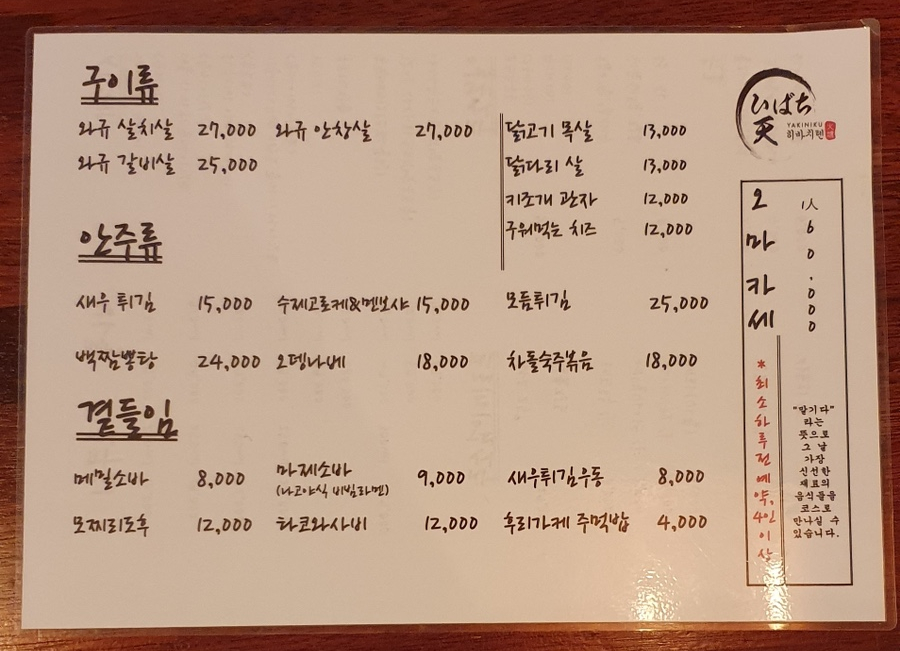 구이류
와규 살치살 27,000 와규 안창살 27,000 닭고기 목살 13,000
와규 갈비살 25,000 닭다리 살 13,000
키조개 관자 12,000
구워먹는 치즈 12,000
안주류
새우 튀김 15,000 수제고로케&멘보샤 15,000 모듬튀김 25,000
백짬뽕탕 24,000 오뎅나베 18,000 차돌숙주볶음 18,000
곁들임
메밀소바 8,000 마제소바 9,000 새우튀김우동 8,000
(나고야식 비빔라멘)
모찌리도후 12,000 타코와사비 12,000 후리가케 주먹밥 4,000
ひばち
天
YAKINIKU
히바치텐
오마카세
1人 60.000
*최소하루전예약, 4인이상
"맡기다"
라는
뜻으로
그 날
가장
신선한
재료의
음식들을
코스로
만나실 수
있습니다.